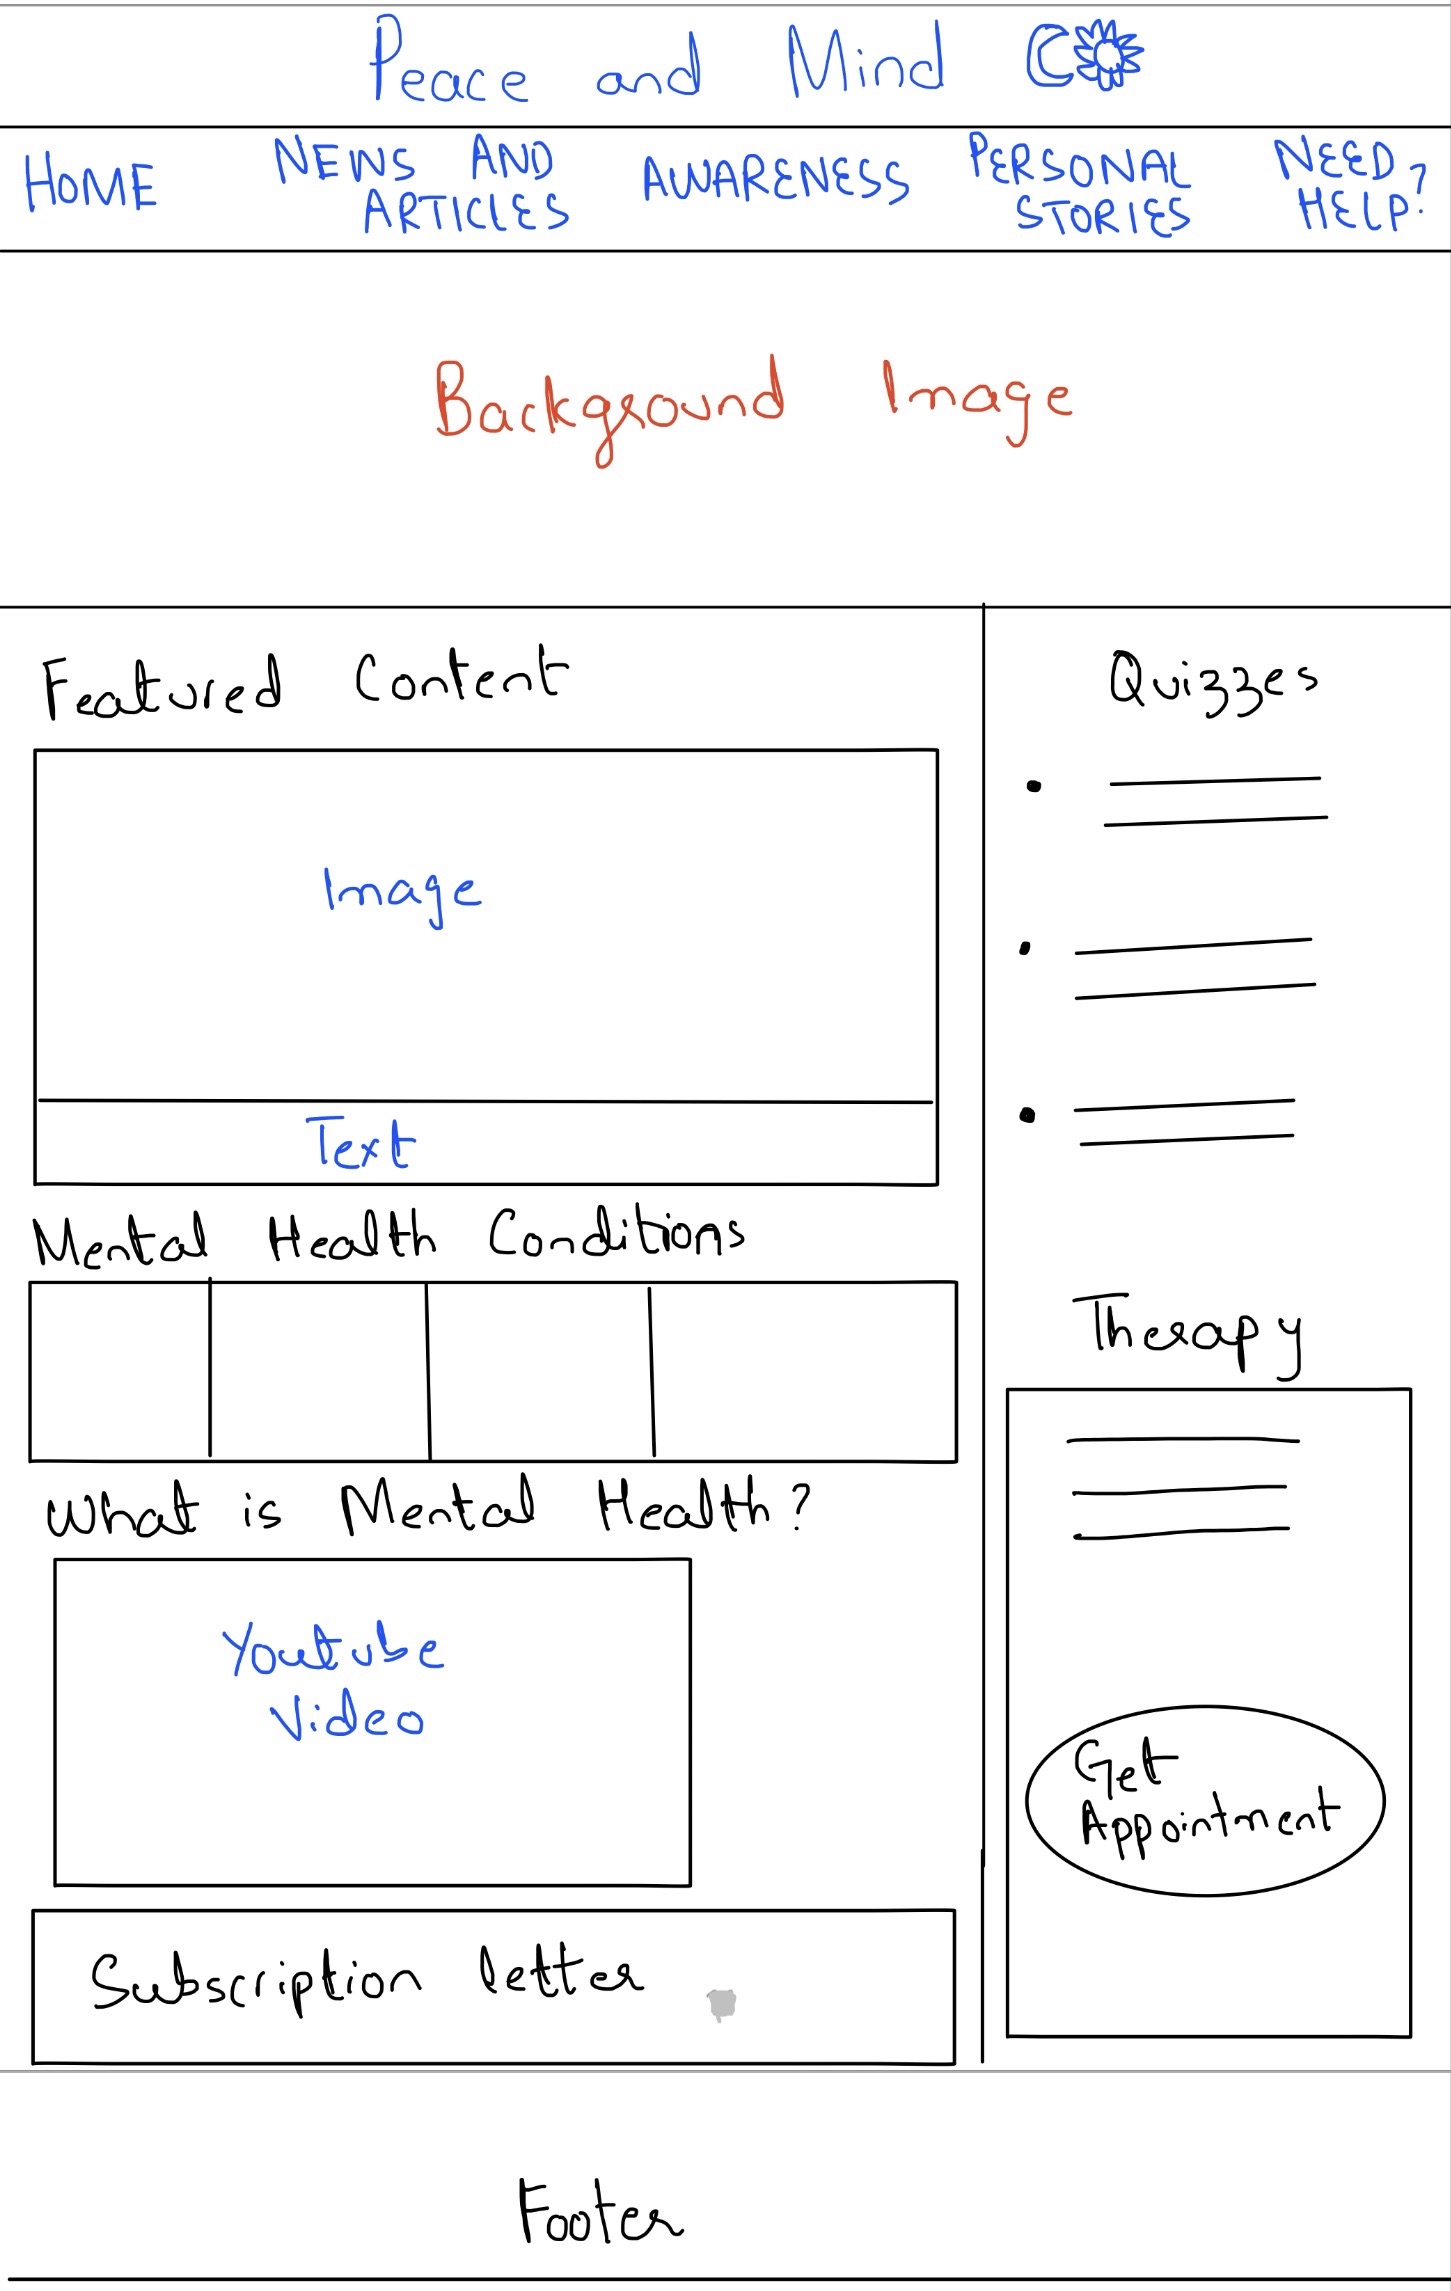 Peace and Mind
HOME
NEWS AND
ARTICLES
AWARENESS
PERSONAL
STORIES
NEED
HELP?
Background Image
Featured Content
Image
Text
Mental Health Conditions
What is Mental Health?
Youtube
Video
Subscription letter
Quizzes
Therapy
Get
Appointment
Footer